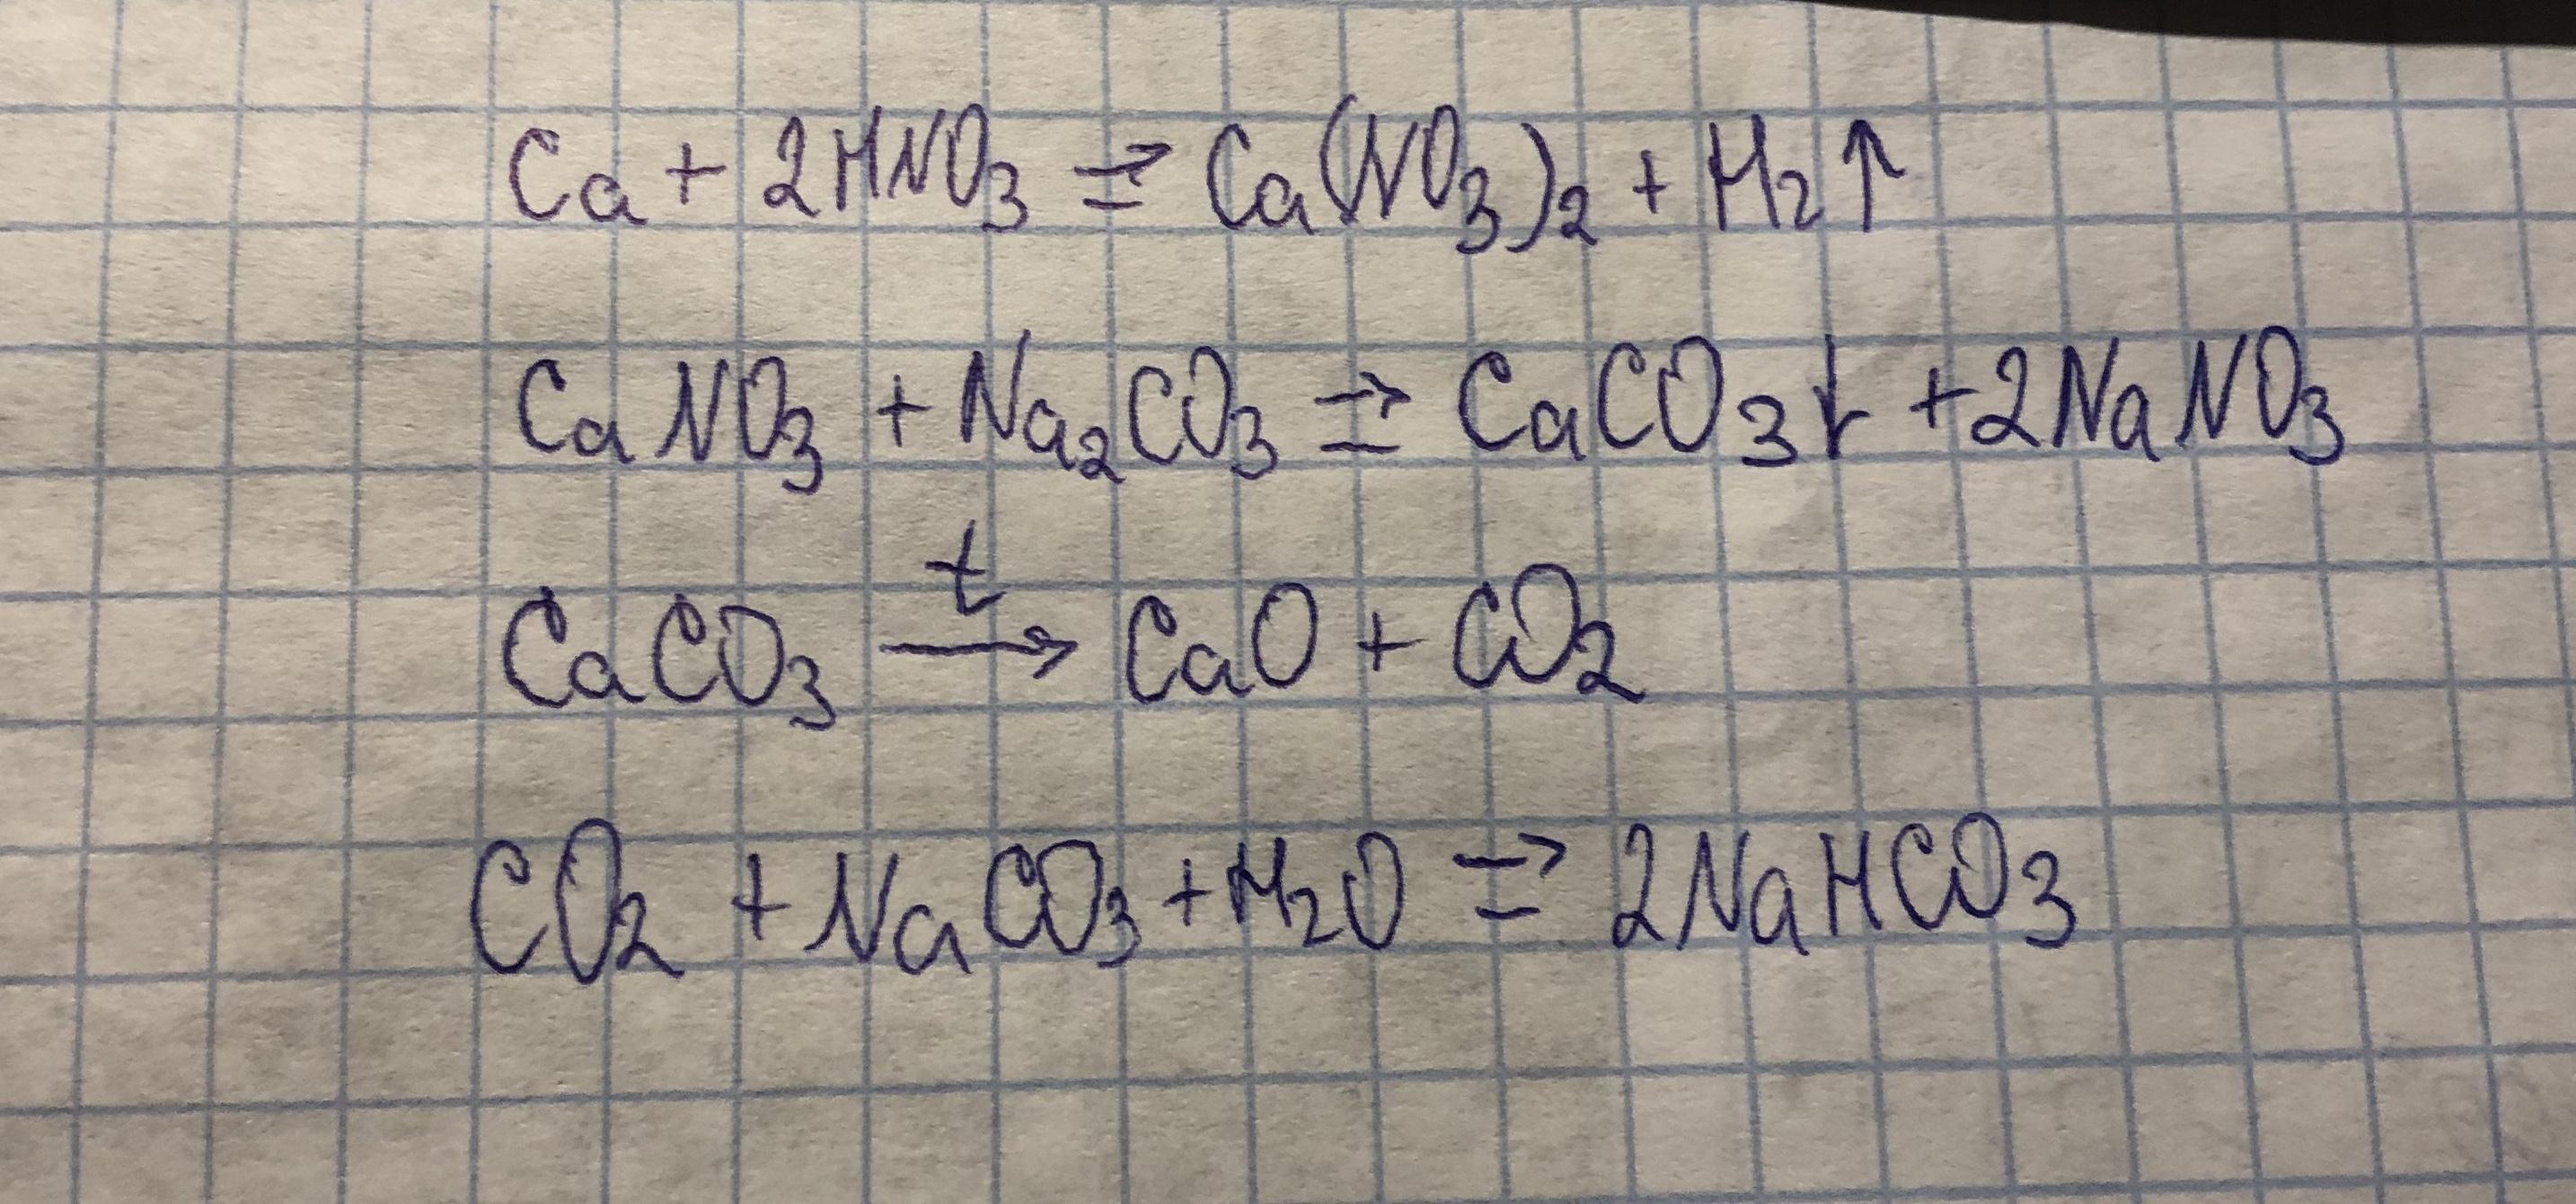 Ca + 2HNO₃ ⇉ Ca(NO₃)₂ + H₂↑
CaNO₃ + Na₂CO₃ ⇉ CaCO₃↓ + 2NaNO₃
CaCO₃ —t→ CaO + CO₂
CO₂ + NaCO₃ + H₂O ⇉ 2NaHCO₃